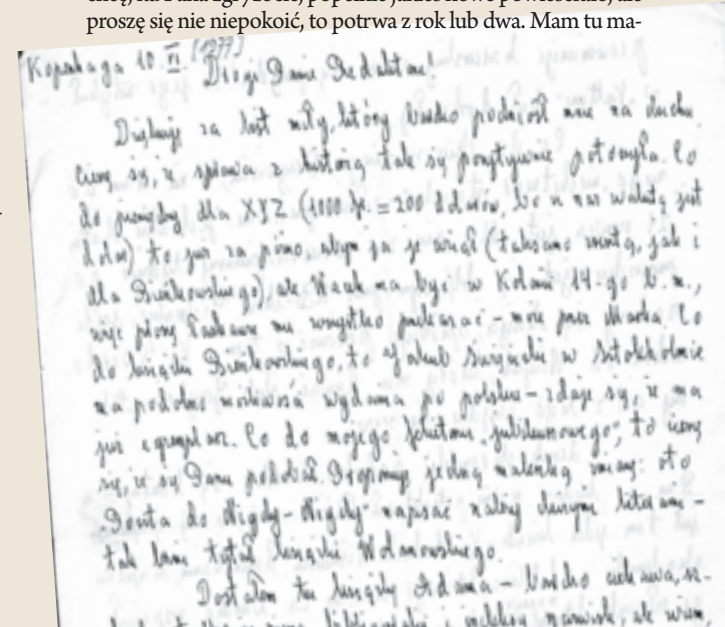 proszę się nie niepokoić, to potrwa z rok lub dwa. Mam tu ma-
Kopenhaga 10.XI. (1977) Drogi Panie Redaktorze!
Dziękuję za list miły, który bardzo podniósł mnie na duchu
Cieszę się, że sprawa z historią tak się pozytywnie potoczyła. Co
do pieniędzy dla XYZ (1000 = 200 dolarów, bo u nas walutą jest
dolar) to już za późno, abym ja je wziął (tak samo zresztą, jak i
dla Bieńkowskiego), ale Wacek ma być w Kolonii 14-go b.m.,
więc proszę łaskawie mu wszystko przekazać – może przez Marka. Co
do książki Bieńkowskiego, to Jakub Święcicki w Sztokholmie
ma podobno możliwość wydania po polsku – zdaje się, że ma
już egzemplarz. Co do mojego felietonu "jubileuszowego", to cieszę
się, że się Panu podobał. Proponuję jedną maleńką zmianę: oto
"Powrót do Nigdy-Nigdy" napisać należy dużymi literami –
tak brzmi tytuł książki Wolanowskiego.
Dostałem tu książkę Adama – bardzo ciekawa,
bibliografii i indeksy nazwisk, ale wiem,